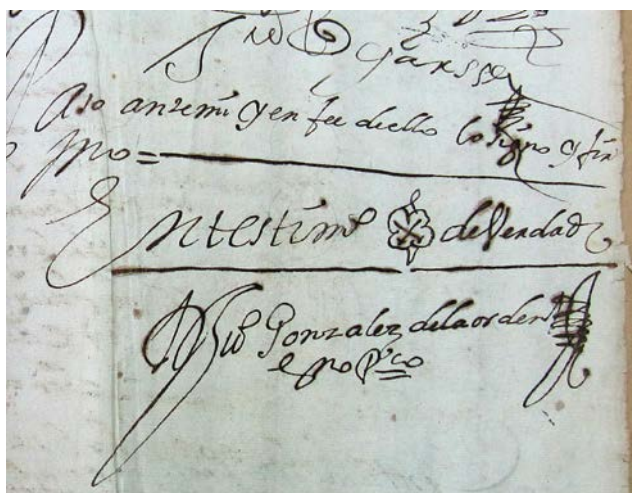 Garsse
Paso antemi y en fee dello lo signo y fir
mo =
En testimo de Verdad
Gonzalez delaorden
esno pco